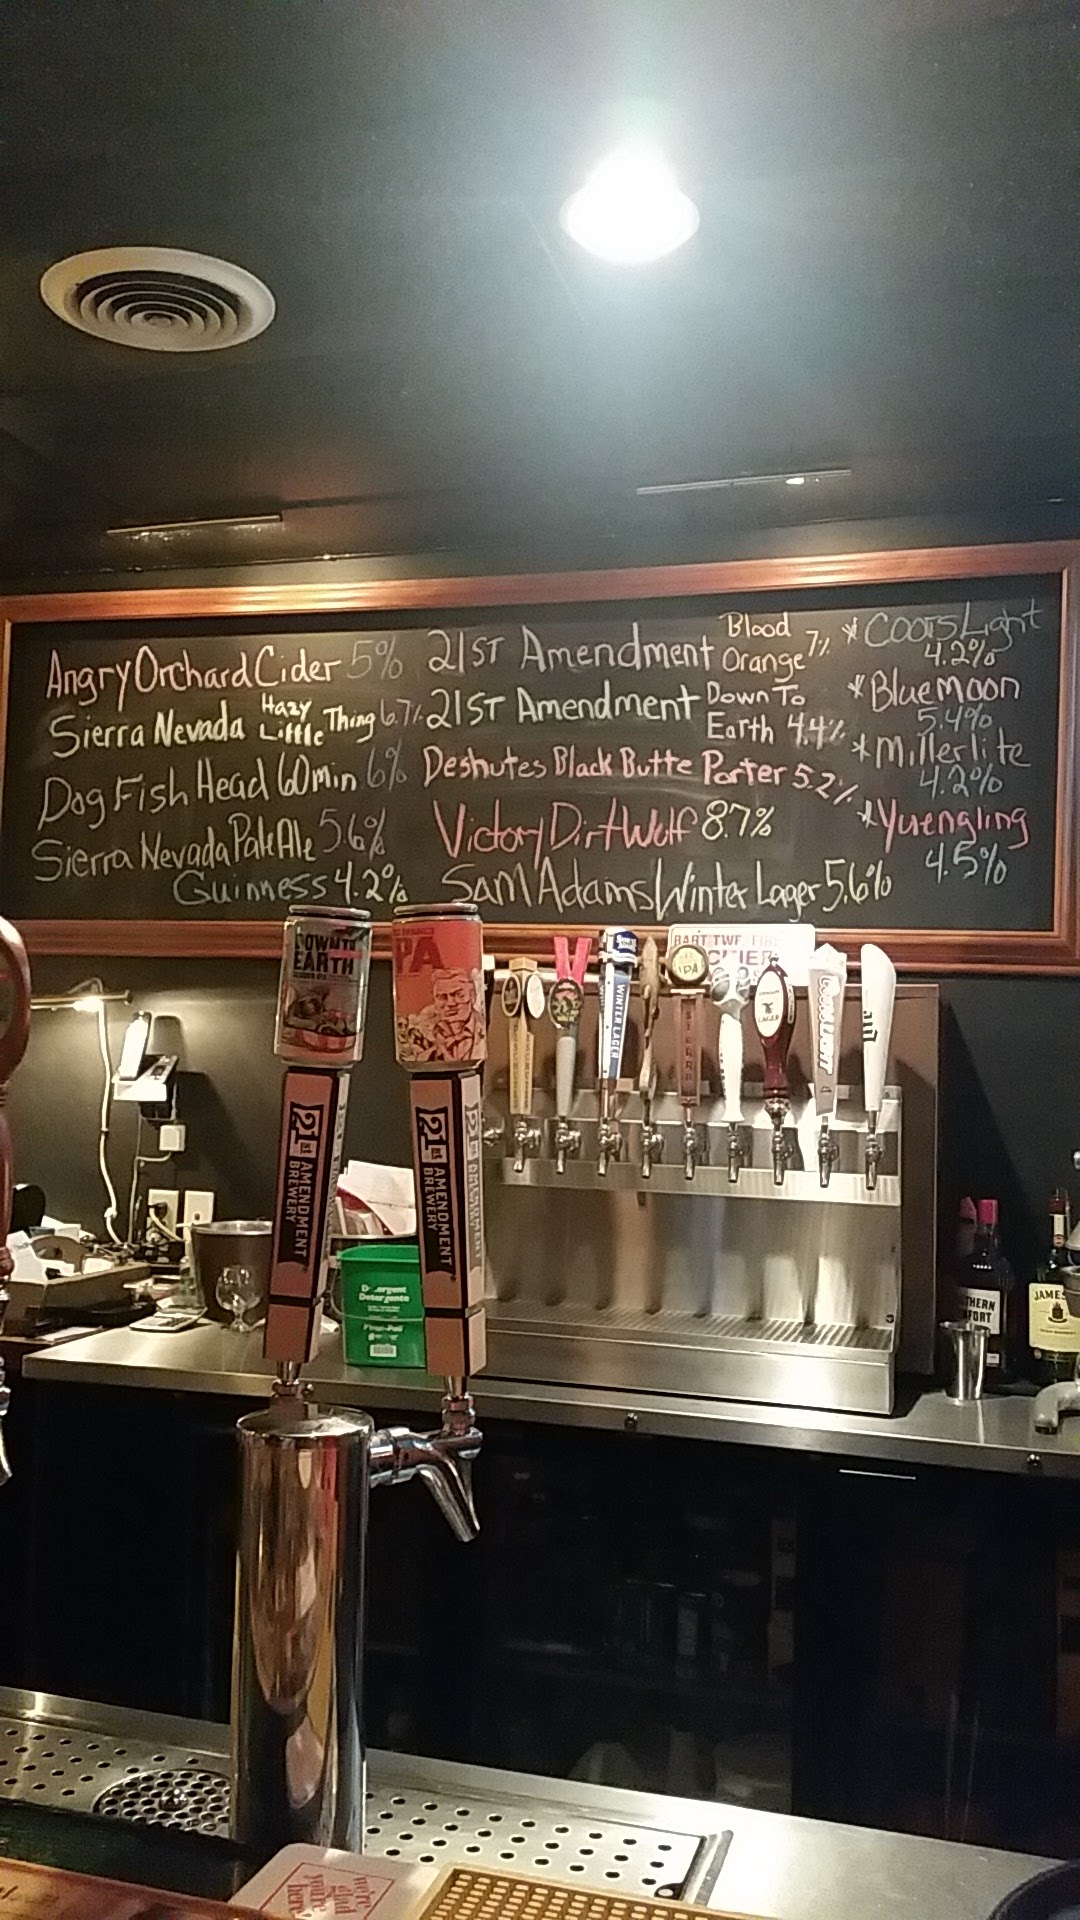 Angry Orchard Cider 5%
Sierra Nevada Hazy Little Thing 6.7%
Dog Fish Head 60 min 6%
Sierra Nevada Pale Ale 5.6%
Guinness 4.2%
21ST Amendment Blood Orange 7%
21ST Amendment Down To Earth 4.4%
Deshutes Black Butte Porter 5.2%
Victory Dirt Wolf 8.7%
Sam Adams Winter Lager 5.6%
* Coors Light
4.2%
* Blue moon
5.4%
* Miller lite
4.2%
* Yuengling
4.5%
DOWN TO
EARTH
PA
21st AMENDMENT
BREWERY
21st AMENDMENT
BREWERY
WINTER LAGER
IPA
SIERRA
LAGER
COORS LIGHT
Detergent
Detergente
THERN
FORT
JAMES
we're
glad
you're
here